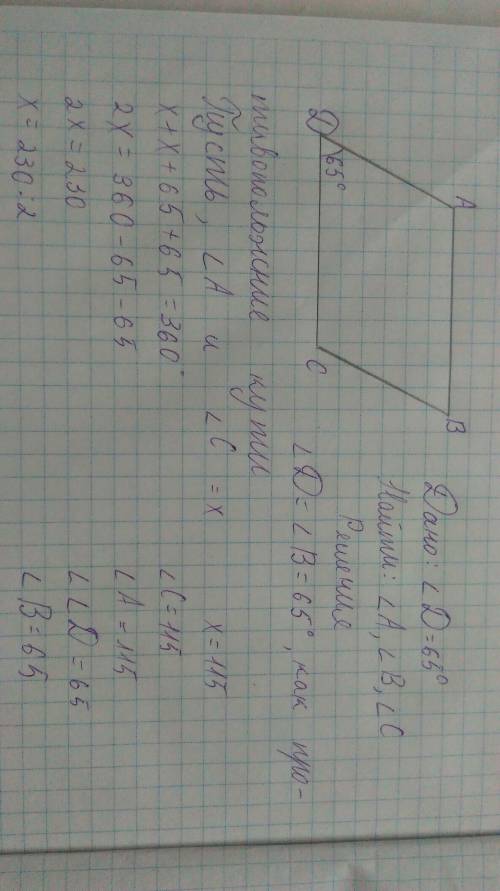 A
B
D
65°
C
Дано: ∠D=65°
Найти: ∠A, ∠B, ∠C
Решение
∠D = ∠B = 65°, как про-
тивоположные
Пусть, ∠A и ∠C = x
x+x+65+65=360°
2x = 360-65-65
2x = 230
x = 230:2
x = 115
∠C=115
∠A=115
∠∠D=65
∠B=65